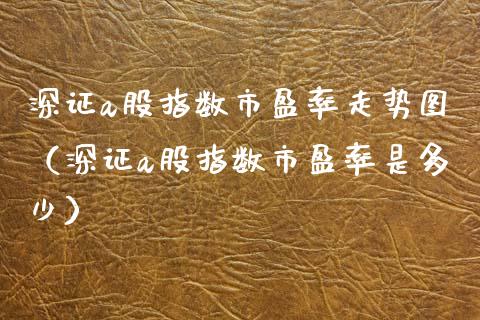 深证a股指数市盈率走势图
（深证a股指数市盈率是多
少）